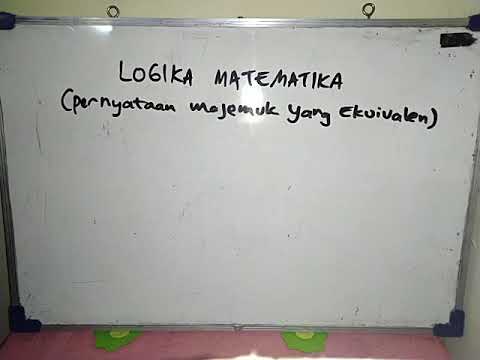 LOGIKA MATEMATIKA
(pernyataan majemuk yang Ekuivalen)